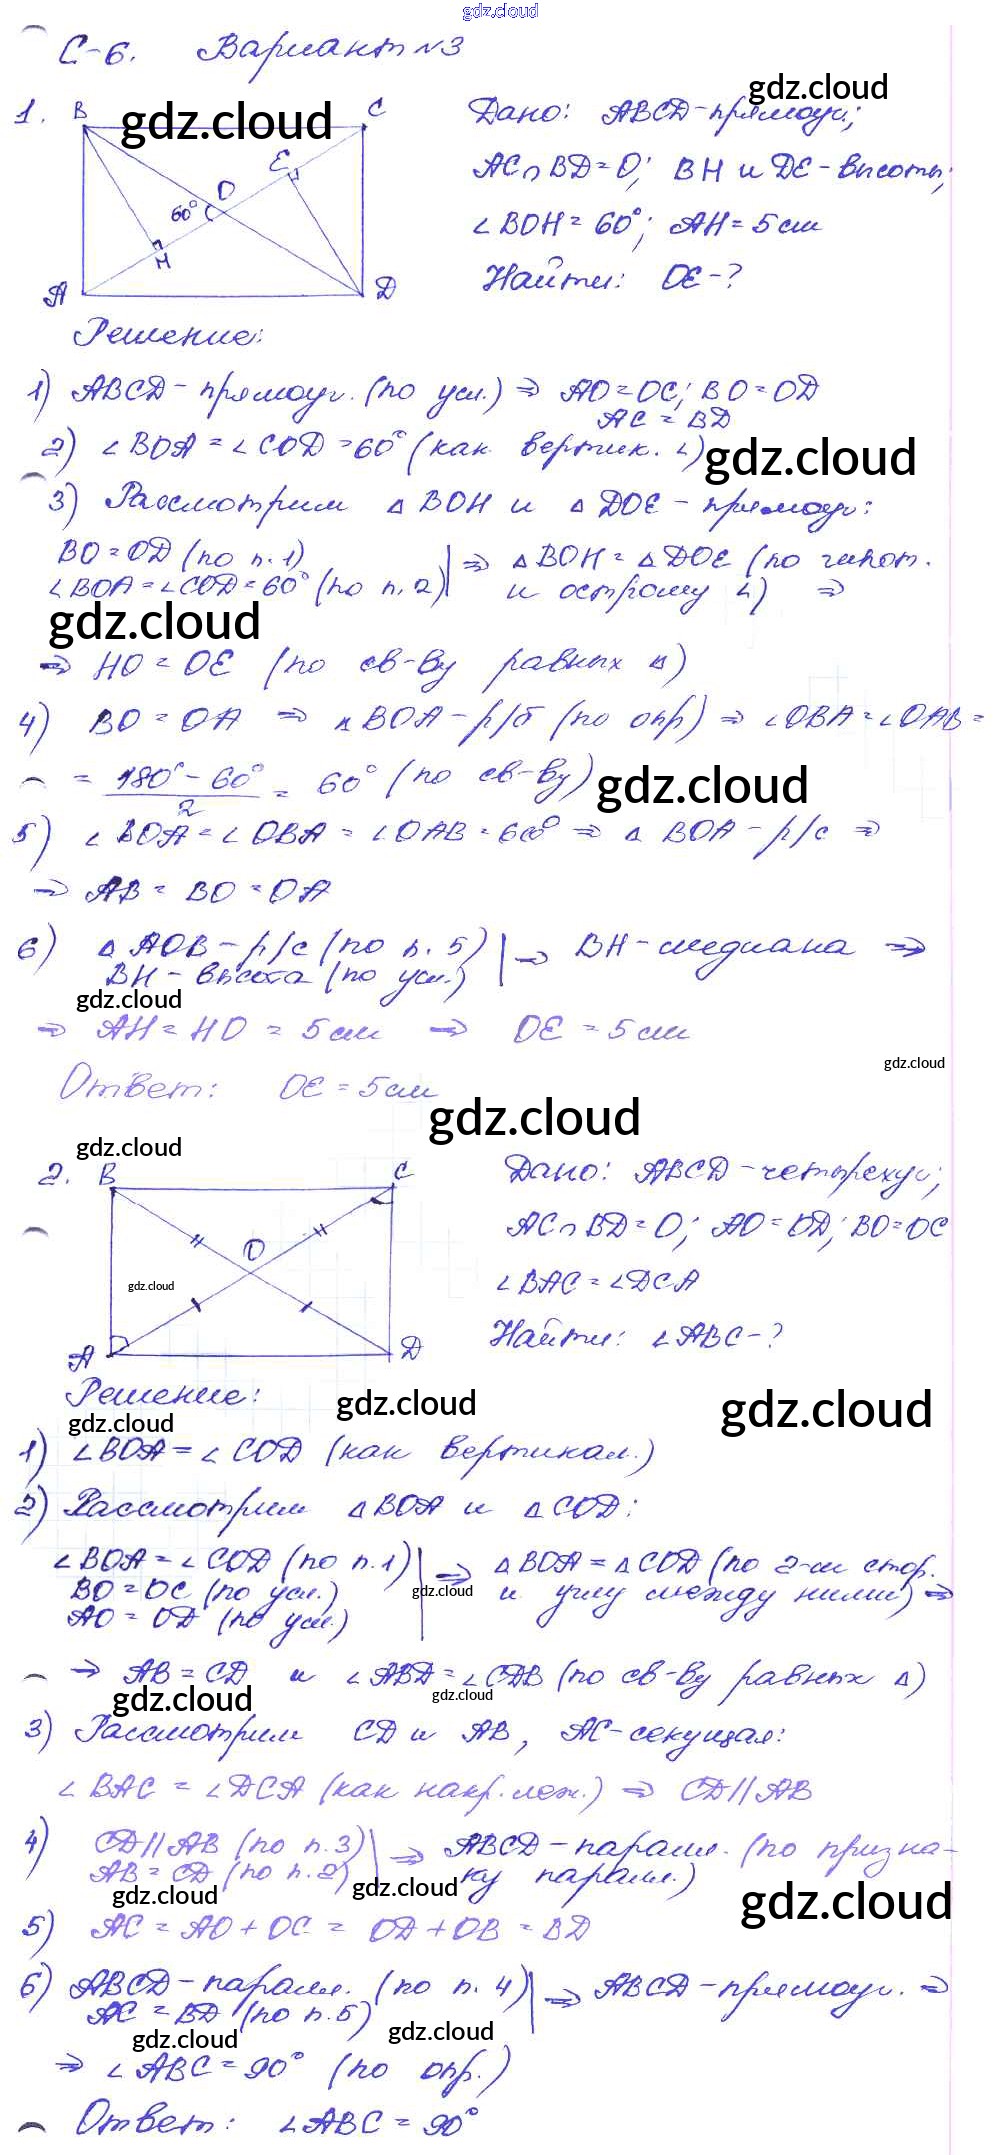 gdz.cloud
С-6. Вариант №3
1. B C E O 60° H A D
Дано: ABCD-прямоуг.;
AC∩BD=O; BH и DE-высоты;
∠BOH=60°; AH=5см
Найти: OE-?
Решение:
1) ABCD-прямоуг. (по усл.) ⇒ AO=OC; BO=OD
AC=BD
2) ∠BOA=∠COD=60° (как вертик. ∠)
gdz.cloud
3) Рассмотрим △BOH и △DOE-прямоуг:
BO=OD (по п.1)
∠BOA=∠COD=60° (по п.2) | ⇒ △BOH=△DOE (по гипот.
и острому ∠) ⇒
gdz.cloud
⇒ HO=OE (по св-ву равных △)
4) BO=OA ⇒ △BOA-р/б (по опр) ⇒ ∠OBA=∠OAB=
= (180°-60°)/2 = 60° (по св-ву)
gdz.cloud
5) ∠BOA=∠OBA=∠OAB=60° ⇒ △BOA-р/с ⇒
⇒ AB=BO=OA
6) △AOB-р/с (по п.5)
BH-высота (по усл.) | ⇒ BH-медиана ⇒
gdz.cloud
⇒ AH=HO=5см ⇒ OE=5см
gdz.cloud
Ответ: OE=5см
gdz.cloud
gdz.cloud
2. B C O A D
Дано: ABCD-четырехуг;
AC∩BD=O; AO=OD; BO=OC
∠BAC=∠DCA
gdz.cloud
Найти: ∠ABC-?
Решение:
gdz.cloud
gdz.cloud
gdz.cloud
1) ∠BOA=∠COD (как вертикал.)
2) Рассмотрим △BOA и △COD:
∠BOA=∠COD (по п.1)
BO=OC (по усл.)
AO=OD (по усл.) | ⇒ △BOA=△COD (по 2-м стор.
и углу между ними) ⇒
gdz.cloud
⇒ AB=CD и ∠ABD=∠CDB (по св-ву равных △)
gdz.cloud
gdz.cloud
3) Рассмотрим CD и AB, AC-секущая:
∠BAC=∠DCA (как накр. леж.) ⇒ CD||AB
4) CD||AB (по п.3)
AB=CD (по п.2) | ⇒ ABCD-паралл. (по призна-
ку паралл.)
gdz.cloud
gdz.cloud
gdz.cloud
5) AC=AO+OC=OD+OB=BD
6) ABCD-паралл. (по п.4)
AC=BD (по п.5) | ⇒ ABCD-прямоуг. ⇒
gdz.cloud
gdz.cloud
⇒ ∠ABC=90° (по опр.)
Ответ: ∠ABC=90°
gdz.cloud
gdz.cloud